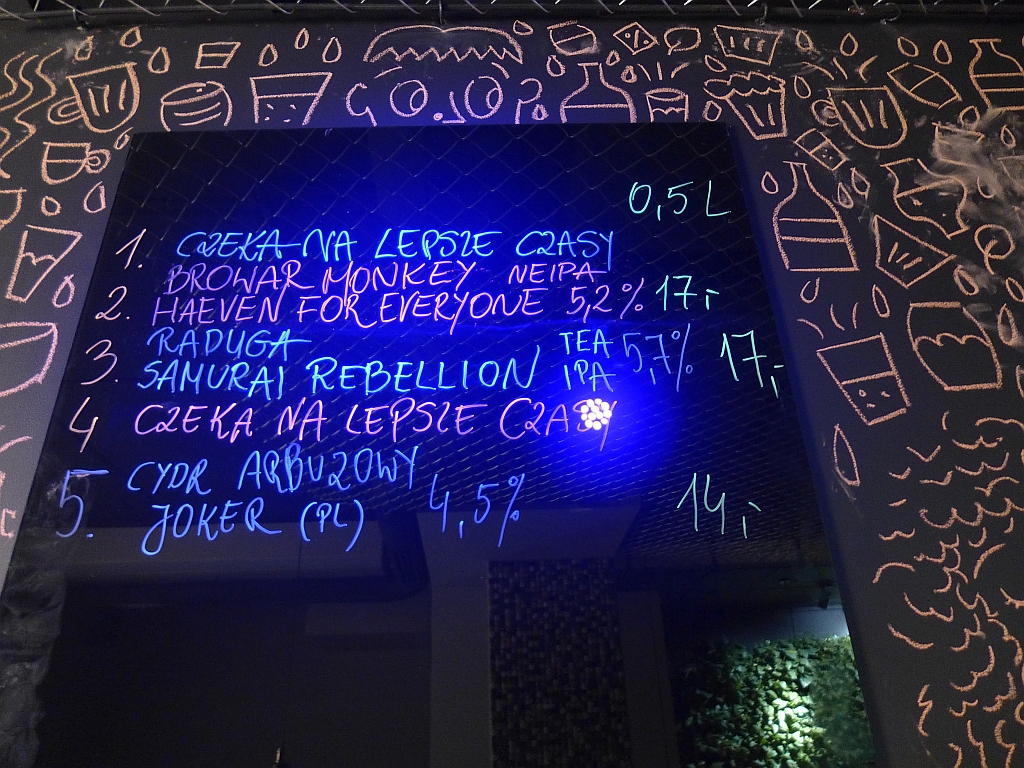 0,5 L
1. CZEKA NA LEPSZE CZASY
BROWAR MONKEY NEIPA
2. HAEVEN FOR EVERYONE 5,2% 17,-
RADUGA TEA
3. SAMURAI REBELLION IPA 5,7% 17,-
4 CZEKA NA LEPSZE CZASY
CYDR ARBUZOWY
5. JOKER (PL) 4,5% 14,-